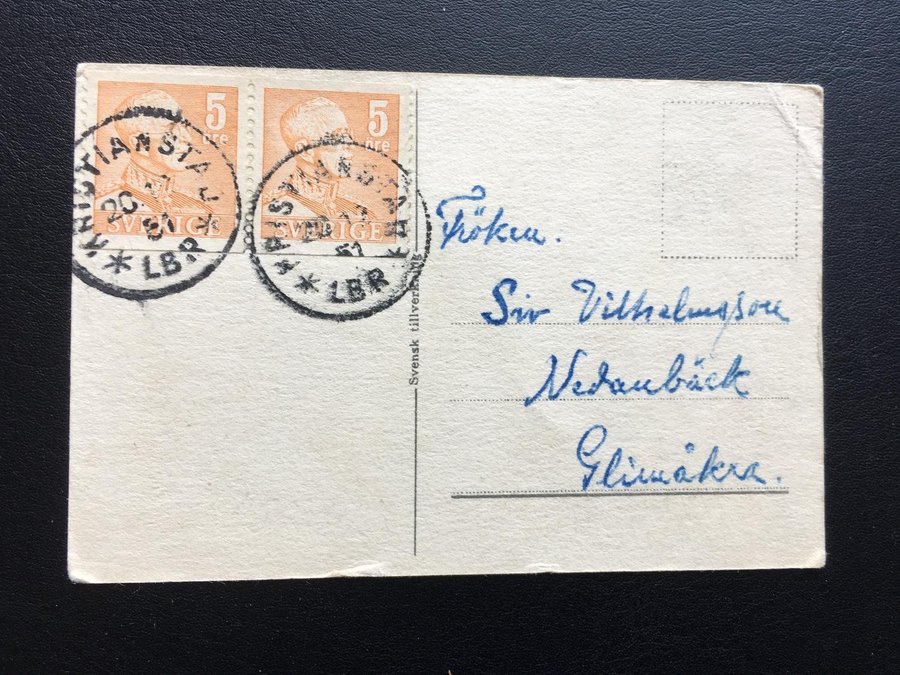 5
öre
SVERIGE
5
öre
SVERIGE
KRISTIANSTAD
20
51
* LBR *
KRISTIANSTAD
51
* LBR *
Svensk tillverkning
Fröken.
Siv Vilhelmgson
Nedanbäck
Glimåkra.